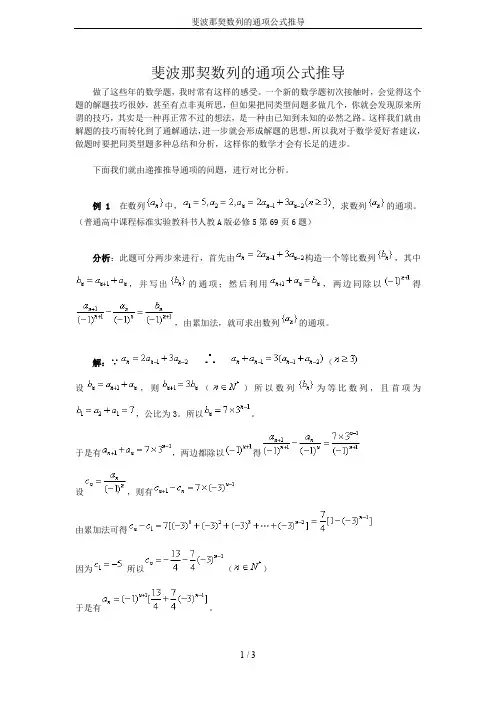 斐波那契数列的通项公式推导
斐波那契数列的通项公式推导
做了这些年的数学题，我时常有这样的感受。一个新的数学题初次接触时，会觉得这个
题的解题技巧很妙，甚至有点非夷所思，但如果把同类型问题多做几个，你就会发现原来所
谓的技巧，其实是一种再正常不过的想法，是一种由已知到未知的必然之路。这样我们就由
解题的技巧而转化到了通解通法，进一步就会形成解题的思想，所以我对于数学爱好者建议，
做题时要把同类型题多种总结和分析，这样你的数学才会有长足的进步。
下面我们就由递推推导通项的问题，进行对比分析。
例 1 在数列{a_n}中，a_1=5,a_2=2,a_n=2a_{n-1}+3a_{n-2}(n≥3)，求数列{a_n}的通项。
（普通高中课程标准实验教科书人教 A 版必修 5 第 69 页 6 题）
分析：此题可分两步来进行，首先由a_n=2a_{n-1}+3a_{n-2}构造一个等比数列{b_n}，其中
b_n=a_{n+1}+a_n，并写出{b_n}的通项；然后利用a_{n+1}+a_n=b_n，两边同除以(-1)^{n+1}得
a_{n+1}/(-1)^{n+1}-a_n/(-1)^n=b_n/(-1)^{n+1}，由累加法，就可求出数列{a_n}的通项。
解：∵a_n=2a_{n-1}+3a_{n-2} ∴ a_n+a_{n-1}=3(a_{n-1}+a_{n-2})（n≥3)
设b_n=a_{n+1}+a_n，则b_{n+1}=3b_n（n∈N*）所以数列{b_n}为等比数列，且首项为
b_1=a_2+a_1=7，公比为 3。所以b_n=7×3^{n-1}。
于是有a_{n+1}+a_n=7×3^{n-1}，两边都除以(-1)^{n+1}得a_{n+1}/(-1)^{n+1}-a_n/(-1)^n=7×3^{n-1}/(-1)^{n+1}
设c_n=a_n/(-1)^n，则有c_{n+1}-c_n=7×(-3)^{n-1}
由累加法可得c_n-c_1=7[(-3)^0+(-3)^2+(-3)^3+…+(-3)^{n-2}]=7/4[1-(-3)^{n-1}]
因为c_1=-5 所以c_n=-13/4-7/4(-3)^{n-1}（n∈N*）
于是有a_n=(-1)^{n+1}[13/4+7/4(-3)^{n-1}]。
1 / 3